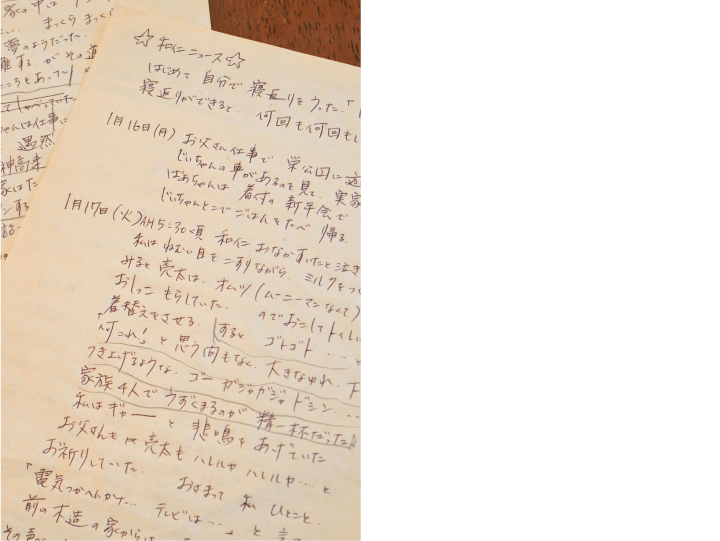 家の中は
まっくら まっく
夢のようだった。
がその道
ころもあった
ちゃんは仕事に
偶然
☆和仁ニュース☆
はじめて 自分で 寝返りをうった。「
寝返りができると、何回も何回もし
1月16日(月) お父さん仕事で 栄公園に
じいちゃんの車があるのを見て、実家
ばあちゃんは 着付の 新年会で
じいちゃんとこで ごはんをたべ 帰る。
1月17日(火)AM5:30頃 和仁 おなかすいたと泣き
私はねむい目をこすりながら、ミルクをつ
みると 亮太は、オムツ(ムーニーマンなくて)
おしっこ もらしていた。 のでおこしてトイレ
着替えをさせる。 すると ゴトゴト……と
「何これ!」と 思う間もなく、大きなゆれ、下
つき上げるような、ゴー ガジャガジャ ドシン…
家族4人で うずくまるのが 精一杯だった。
私はギャー と 悲鳴を あげていた
お父さんも 亮太も ハレルヤ ハレルヤ…と
お祈りしていた。 おさまって 私 ひとこと、
「電気つかへんかな… テレビは…」と
前の木造の家からは
その声